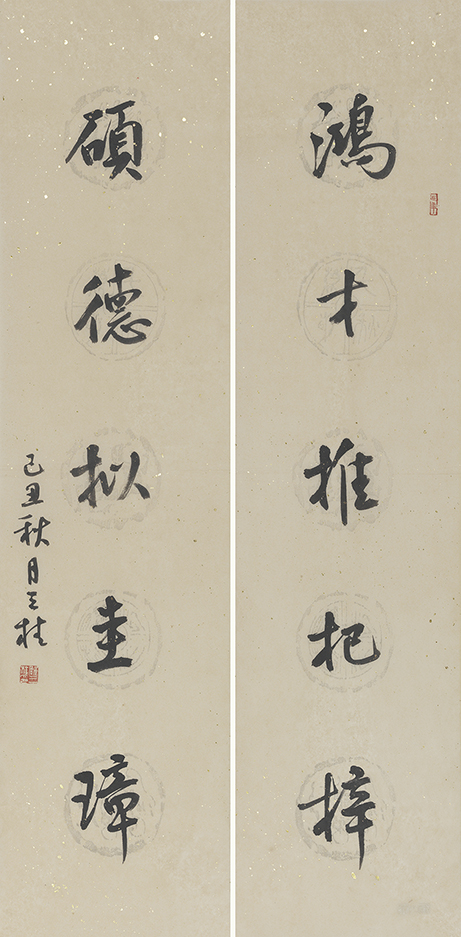 鸿才推杞梓
硕德拟圭璋
己丑秋月天桂